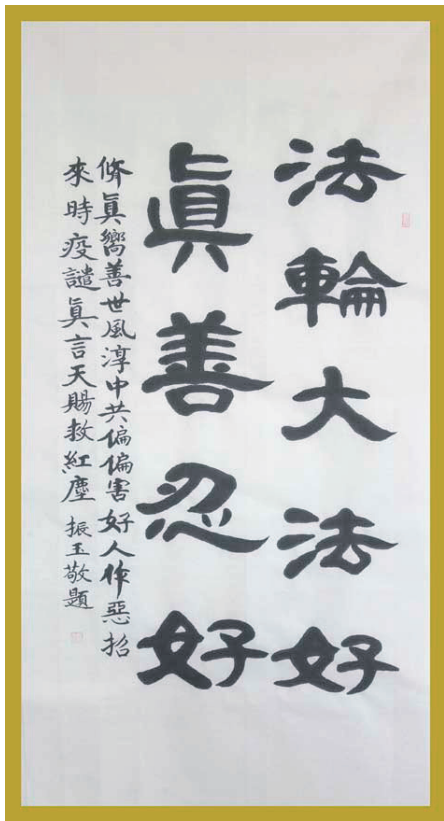 法輪大法好
眞善忍好
脩眞嚮善世風淳中共偏偏害好人作惡招
來時疫譴眞言天賜救紅塵 振玉敬題